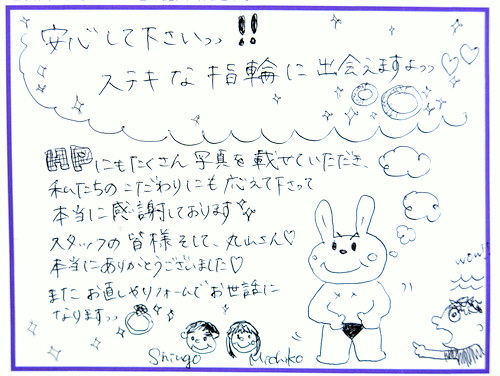 安心して下さいっっ!!
ステキな指輪に出会えますよっっ♡♡
HPにもたくさん写真を載せていただき、
私たちのこだわりにも応えて下さって
本当に感謝しております
スタッフの皆様そして、丸山さん♡
本当にありがとうございました♡
またお直しやリフォームでお世話に
なりますっっ
Shingo Michiko
wow!